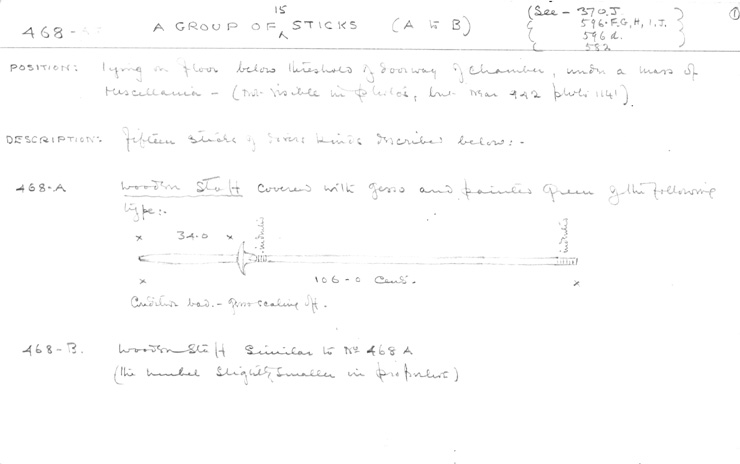 468-
A GROUP OF 15 STICKS (A to B)
(See - 370.J.
596.F.G,H,I.J.
596d.
582
①
POSITION: Lying on floor below threshold of doorway of chamber, under a mass of
Miscellania - (not visible in photos, but near 442 photo 1141)
DESCRIPTION: Fifteen sticks of divers kinds described below:-
468-A Wooden Staff covered with gesso and painted green of the following
type:-
x 34.0 x
x 106-0 Cent. x
Condition bad. - gesso scaling off.
468-B. Wooden Staff Similar to No 468 A
(the umbel slightly smaller in proportion)